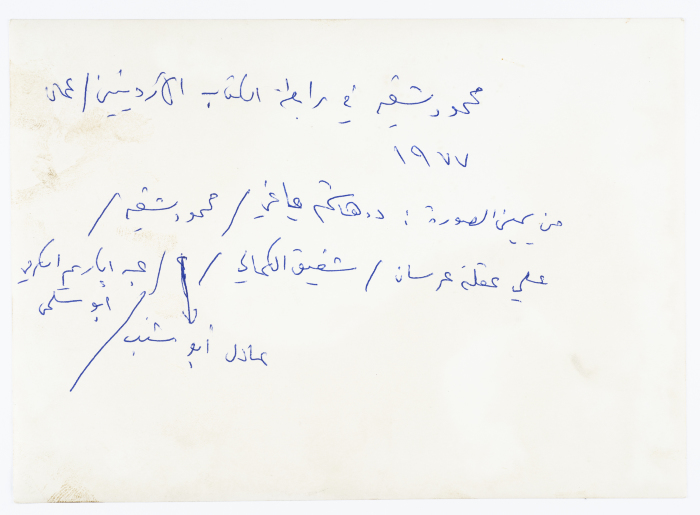 محمود شقير في رابطة الكتاب الأردنيين / عمان
١٩٧٧
من يمين الصورة : د. هاشم ياغي / محمود شقير /
علي عقلة عرسان / شفيق الكمالي / / عبد الكريم الكرمي
أبو سلمى
عادل أبو شنب /